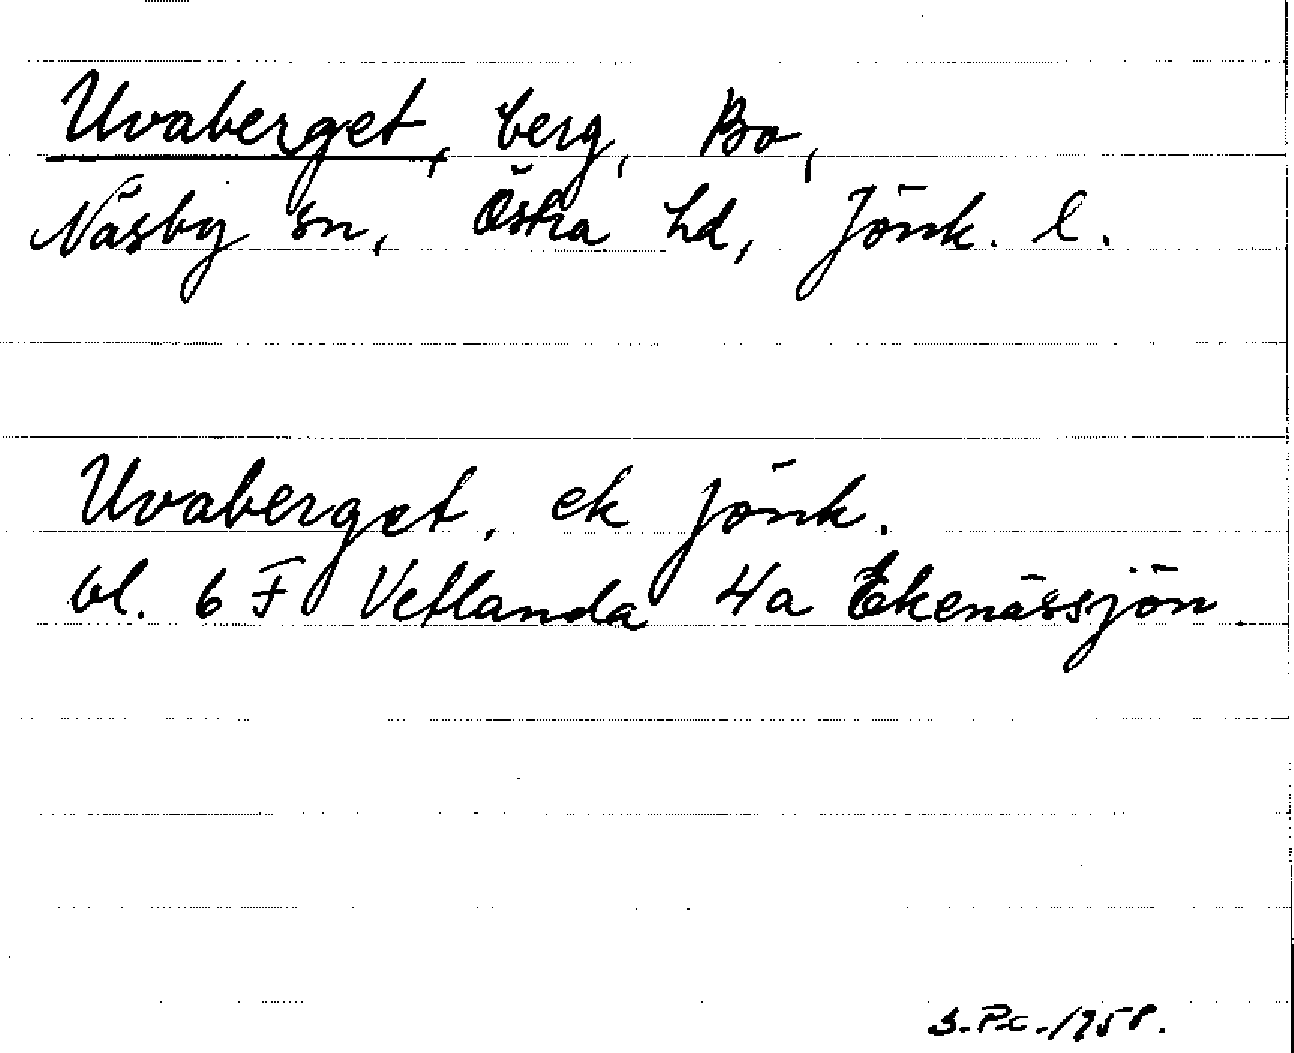 Uvaberget, berg, Bo,
Näsby sn, Östra hd, Jönk. l.
Uvaberget, ek Jönk.
bl. 6 F Vetlanda 4a Ekenässjön.
1958.